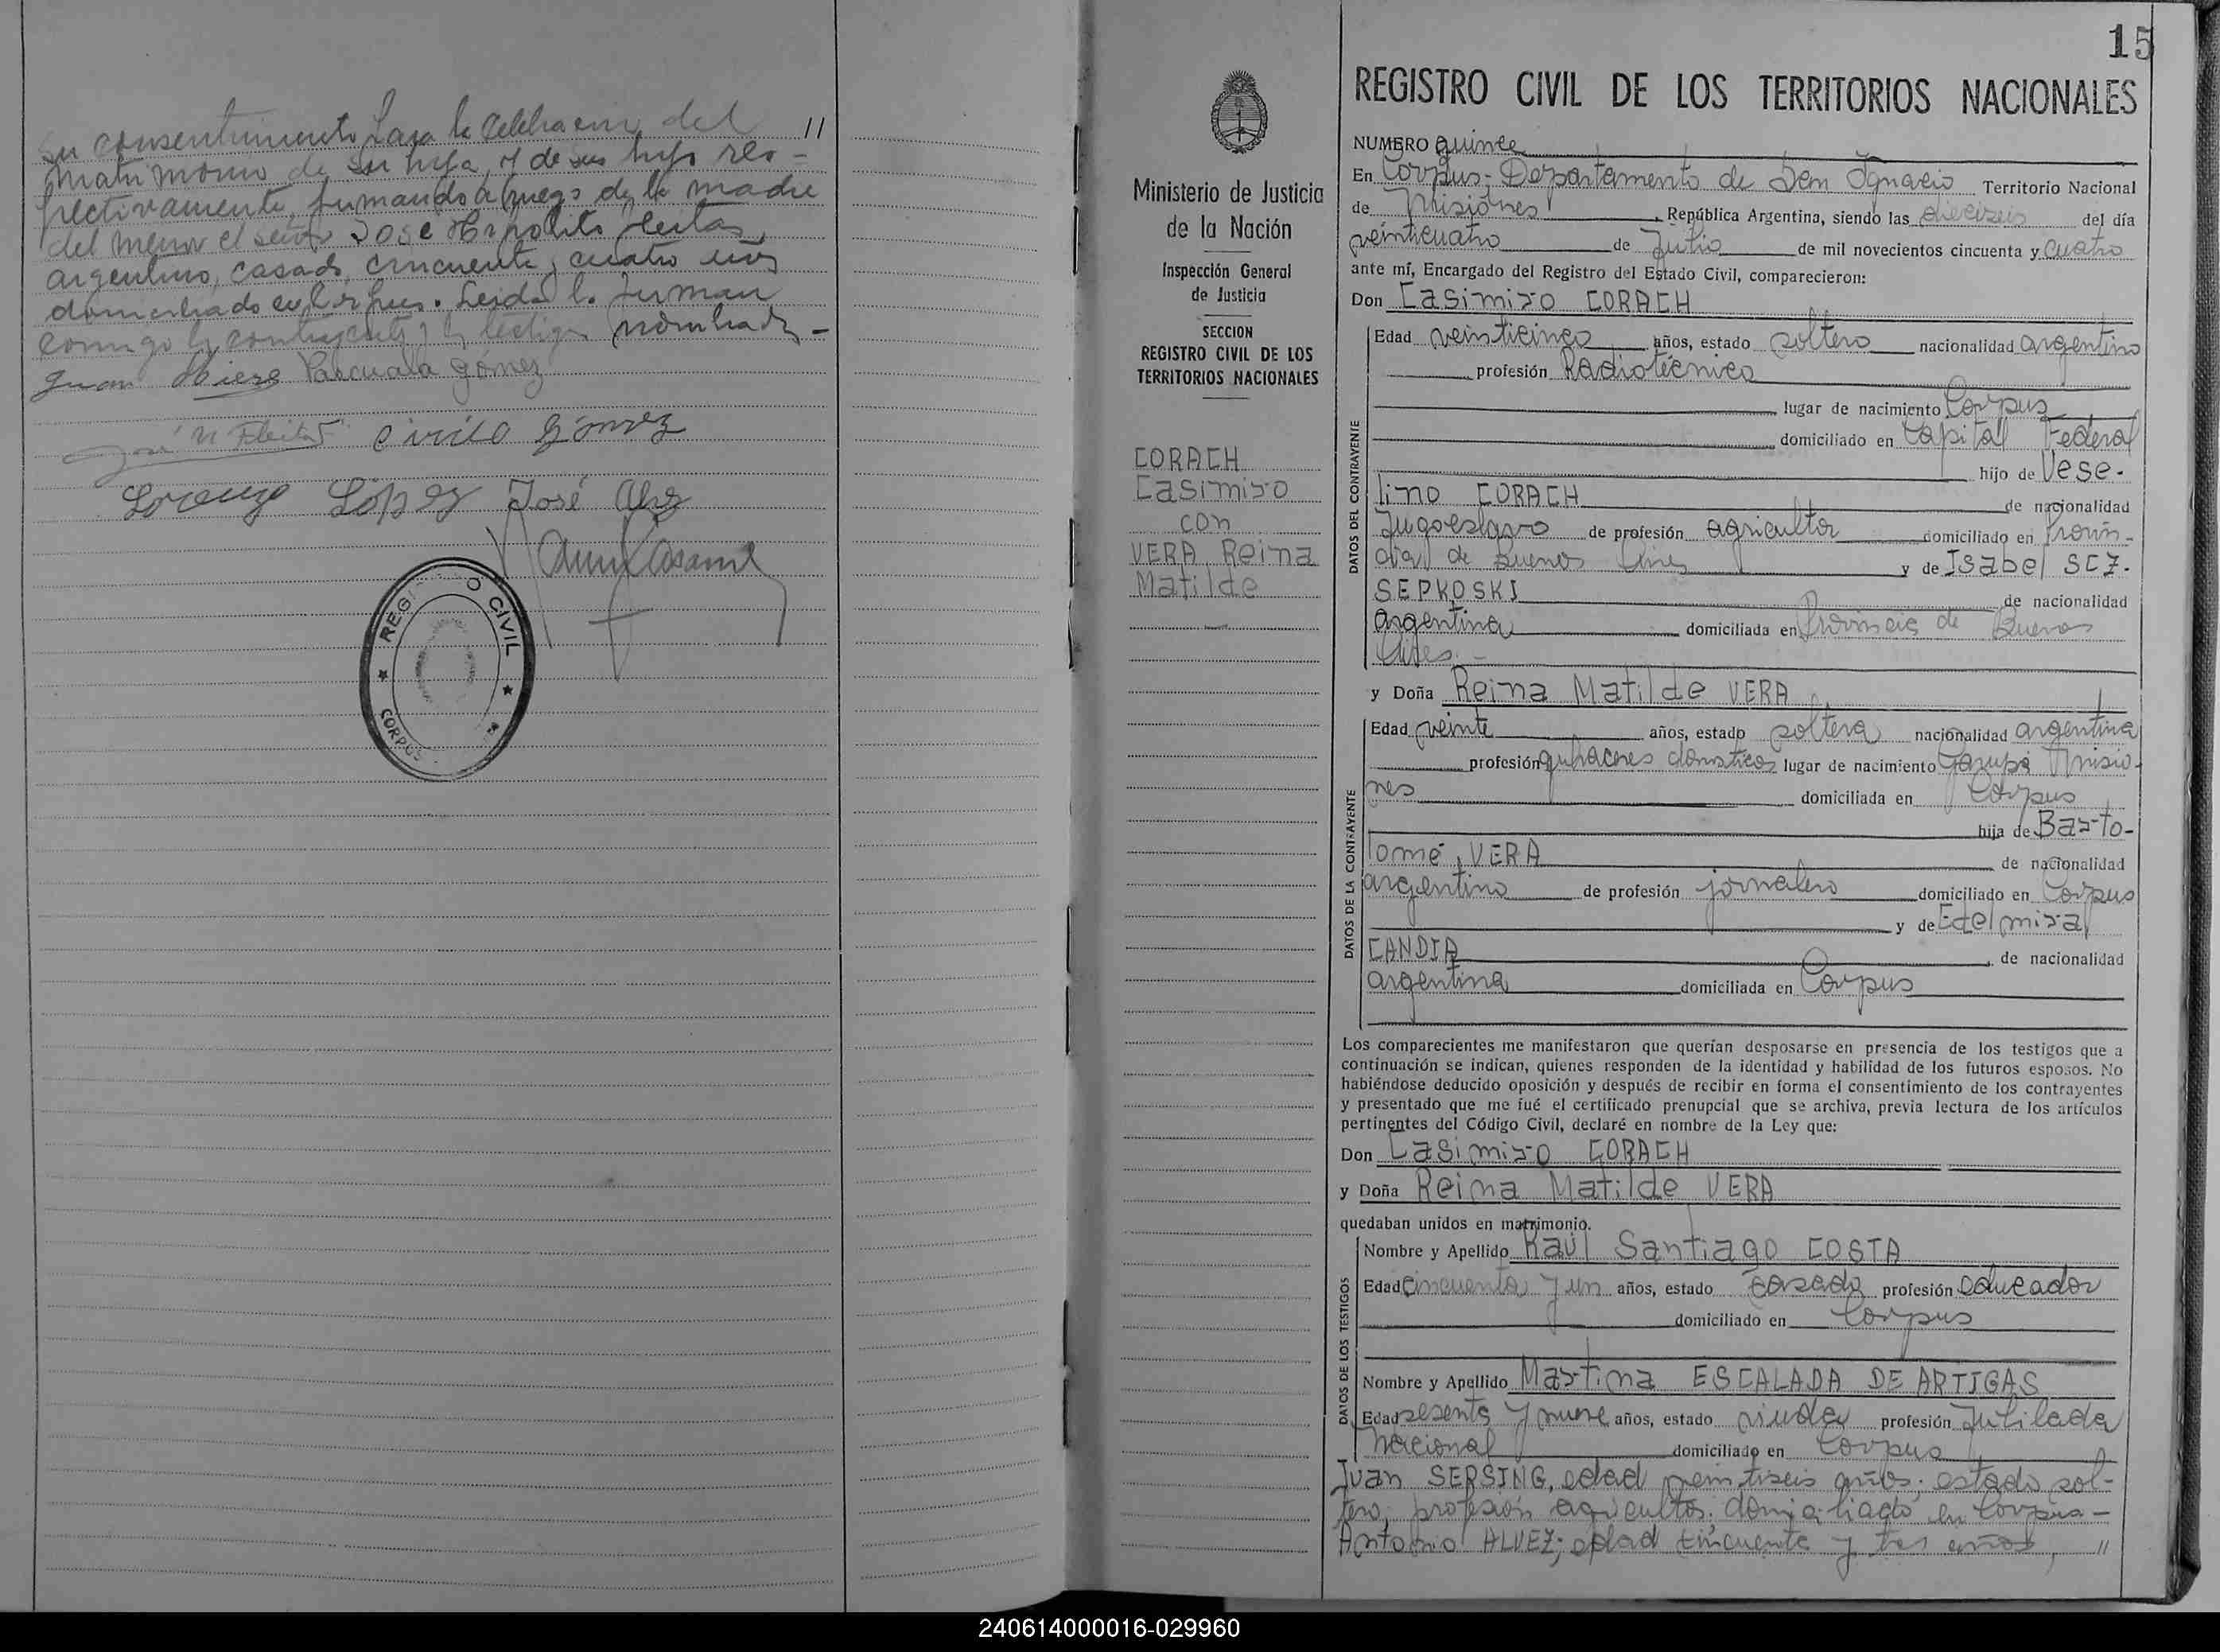 su consentimiento para la celebración del //
matrimonio de su hija y de su hijo res-
pectivamente, firmando a ruego de la madre
del menor el señor José Hipólito Fleitas,
argentino, casado, cincuenta y cuatro años
domiciliado en Corpus. Leída la firman
conmigo los contrayentes y los testigos nombrados -
Juan Pascuala Gómez
José H Fleitas Cirilo Gómez
Lorenzo López José
REGI O CIVIL
CORPUS
Ministerio de Justicia
de la Nación
Inspección General
de Justicia
SECCION
REGISTRO CIVIL DE LOS
TERRITORIOS NACIONALES
CORACH
Casimiro
con
VERA Reina
Matilde
15
REGISTRO CIVIL DE LOS TERRITORIOS NACIONALES
NUMERO quince
En Corpus, Departamento de San Ignacio Territorio Nacional
de Misiones, República Argentina, siendo las dieciseis del día
veinticuatro de Julio de mil novecientos cincuenta y cuatro
ante mí, Encargado del Registro del Estado Civil, comparecieron:
Don Casimiro CORACH
DATOS DEL CONTRAYENTE
Edad veinticinco años, estado soltero nacionalidad argentino
profesión Radiotécnico
lugar de nacimiento Corpus
domiciliado en Capital Federal
hijo de Vese-
lino CORACH de nacionalidad
Jugoeslavo de profesión agricultor domiciliado en Provin-
cia de Buenos Aires y de Isabel SCZ-
SEPKOSKI de nacionalidad
Argentina domiciliada en Provincia de Buenos
Aires.-
y Doña Reina Matilde VERA
DATOS DE LA CONTRAYENTE
Edad veinte años, estado soltera nacionalidad argentina
profesión quhaceres domésticos lugar de nacimiento Garupá Misio-
nes domiciliada en Corpus
hija de Barto-
lomé VERA de nacionalidad
argentino de profesión jornalero domiciliado en Corpus
y de Edelmira
CANDIA de nacionalidad
argentina domiciliada en Corpus
Los comparecientes me manifestaron que querían desposarse en presencia de los testigos que a
continuación se indican, quienes responden de la identidad y habilidad de los futuros esposos. No
habiéndose deducido oposición y después de recibir en forma el consentimiento de los contrayentes
y presentado que me fué el certificado prenupcial que se archiva, previa lectura de los artículos
pertinentes del Código Civil, declaré en nombre de la Ley que:
Don Casimiro CORACH
y Doña Reina Matilde VERA
quedaban unidos en matrimonio.
DATOS DE LOS TESTIGOS
Nombre y Apellido Raúl Santiago COSTA
Edad cincuenta y un años, estado casado profesión educador
domiciliado en Corpus
Nombre y Apellido Martina ESCALADA DE ARTIGAS
Edad sesenta y nueve años, estado viuda profesión Jubilada
Nacional domiciliado en Corpus
Juan SERSING, edad veintiseis años, estado sol-
tero, profesión agricultor, domiciliado en Corpus-
Antonio ALVEZ; edad cincuenta y tres años, //
240614000016-029960